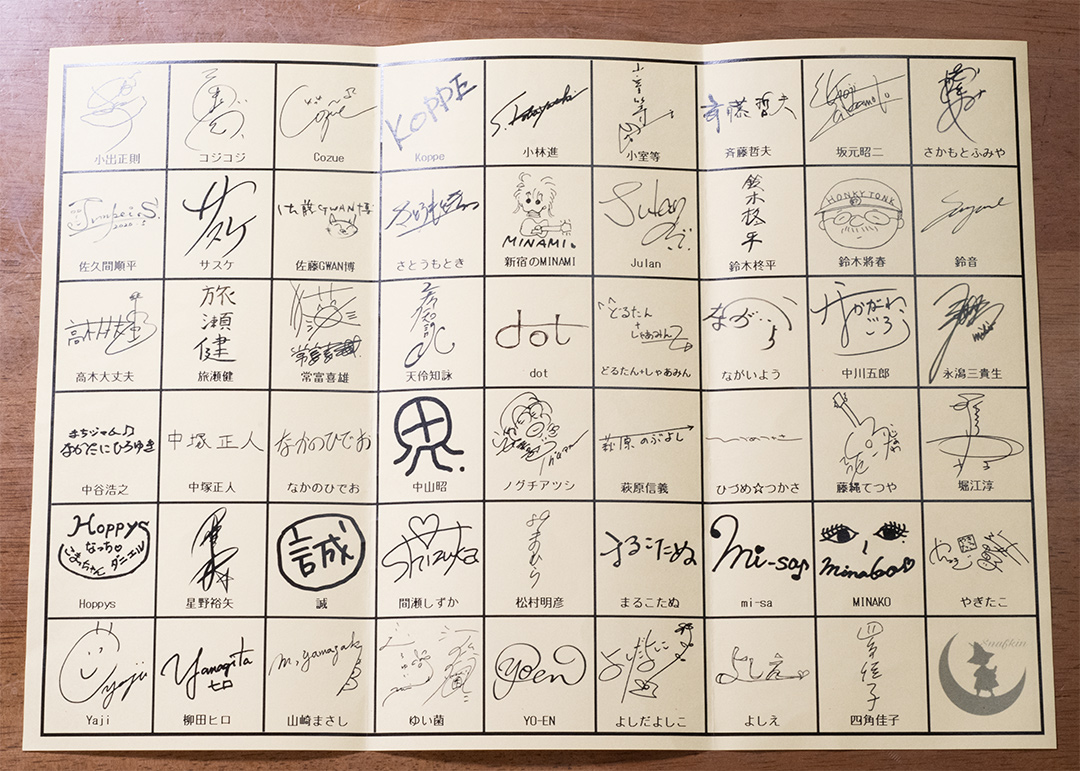 小出正則
コジコジ
Cozue
KOPPE
Koppe
小林進
小室等
小室等
斉藤哲夫
斉藤哲夫
坂元昭二
さかもとふみや
Jumpei S.
2020
佐久間順平
サスケ
サスケ
佐藤GWAN博
佐藤GWAN博
さとうもとき
MINAMI.
新宿のMINAMI
Julan
Julan
鈴木柊平
鈴木柊平
HONKY TONK
鈴木將春
鈴音
高木大丈夫
旅瀬健
旅瀬健
常富喜雄
天伶知詠
dot
dot
どるたん
+
しゃあみん
どるたん+しゃあみん
なが
ながいよう
中川五郎
永潟三貴生
まちジャム♪
なかたにひろゆき
中谷浩之
中塚正人
中塚正人
なかのひでお
なかのひでお
中山昭
ノグチアツシ
萩原のぶよし
萩原信義
ひづめ☆つかさ
藤縄てつや
堀江淳
Hoppys
なっち♡
こまっちゃん
ダニエル
Hoppys
星野裕矢
誠
誠
Shizuka
間瀬しずか
松村明彦
まるこたぬ
まるこたぬ
mi-sa♪
mi-sa
minako♡
MINAKO
やぎたこ
Yajii
Yaji
Yanagita
ヒロ
柳田ヒロ
m, yamazaki
山崎まさし
ゆい菌
yoen
YO-EN
よしだよしこ
よしえ
よしえ
四角佳子
四角佳子
Snufkin